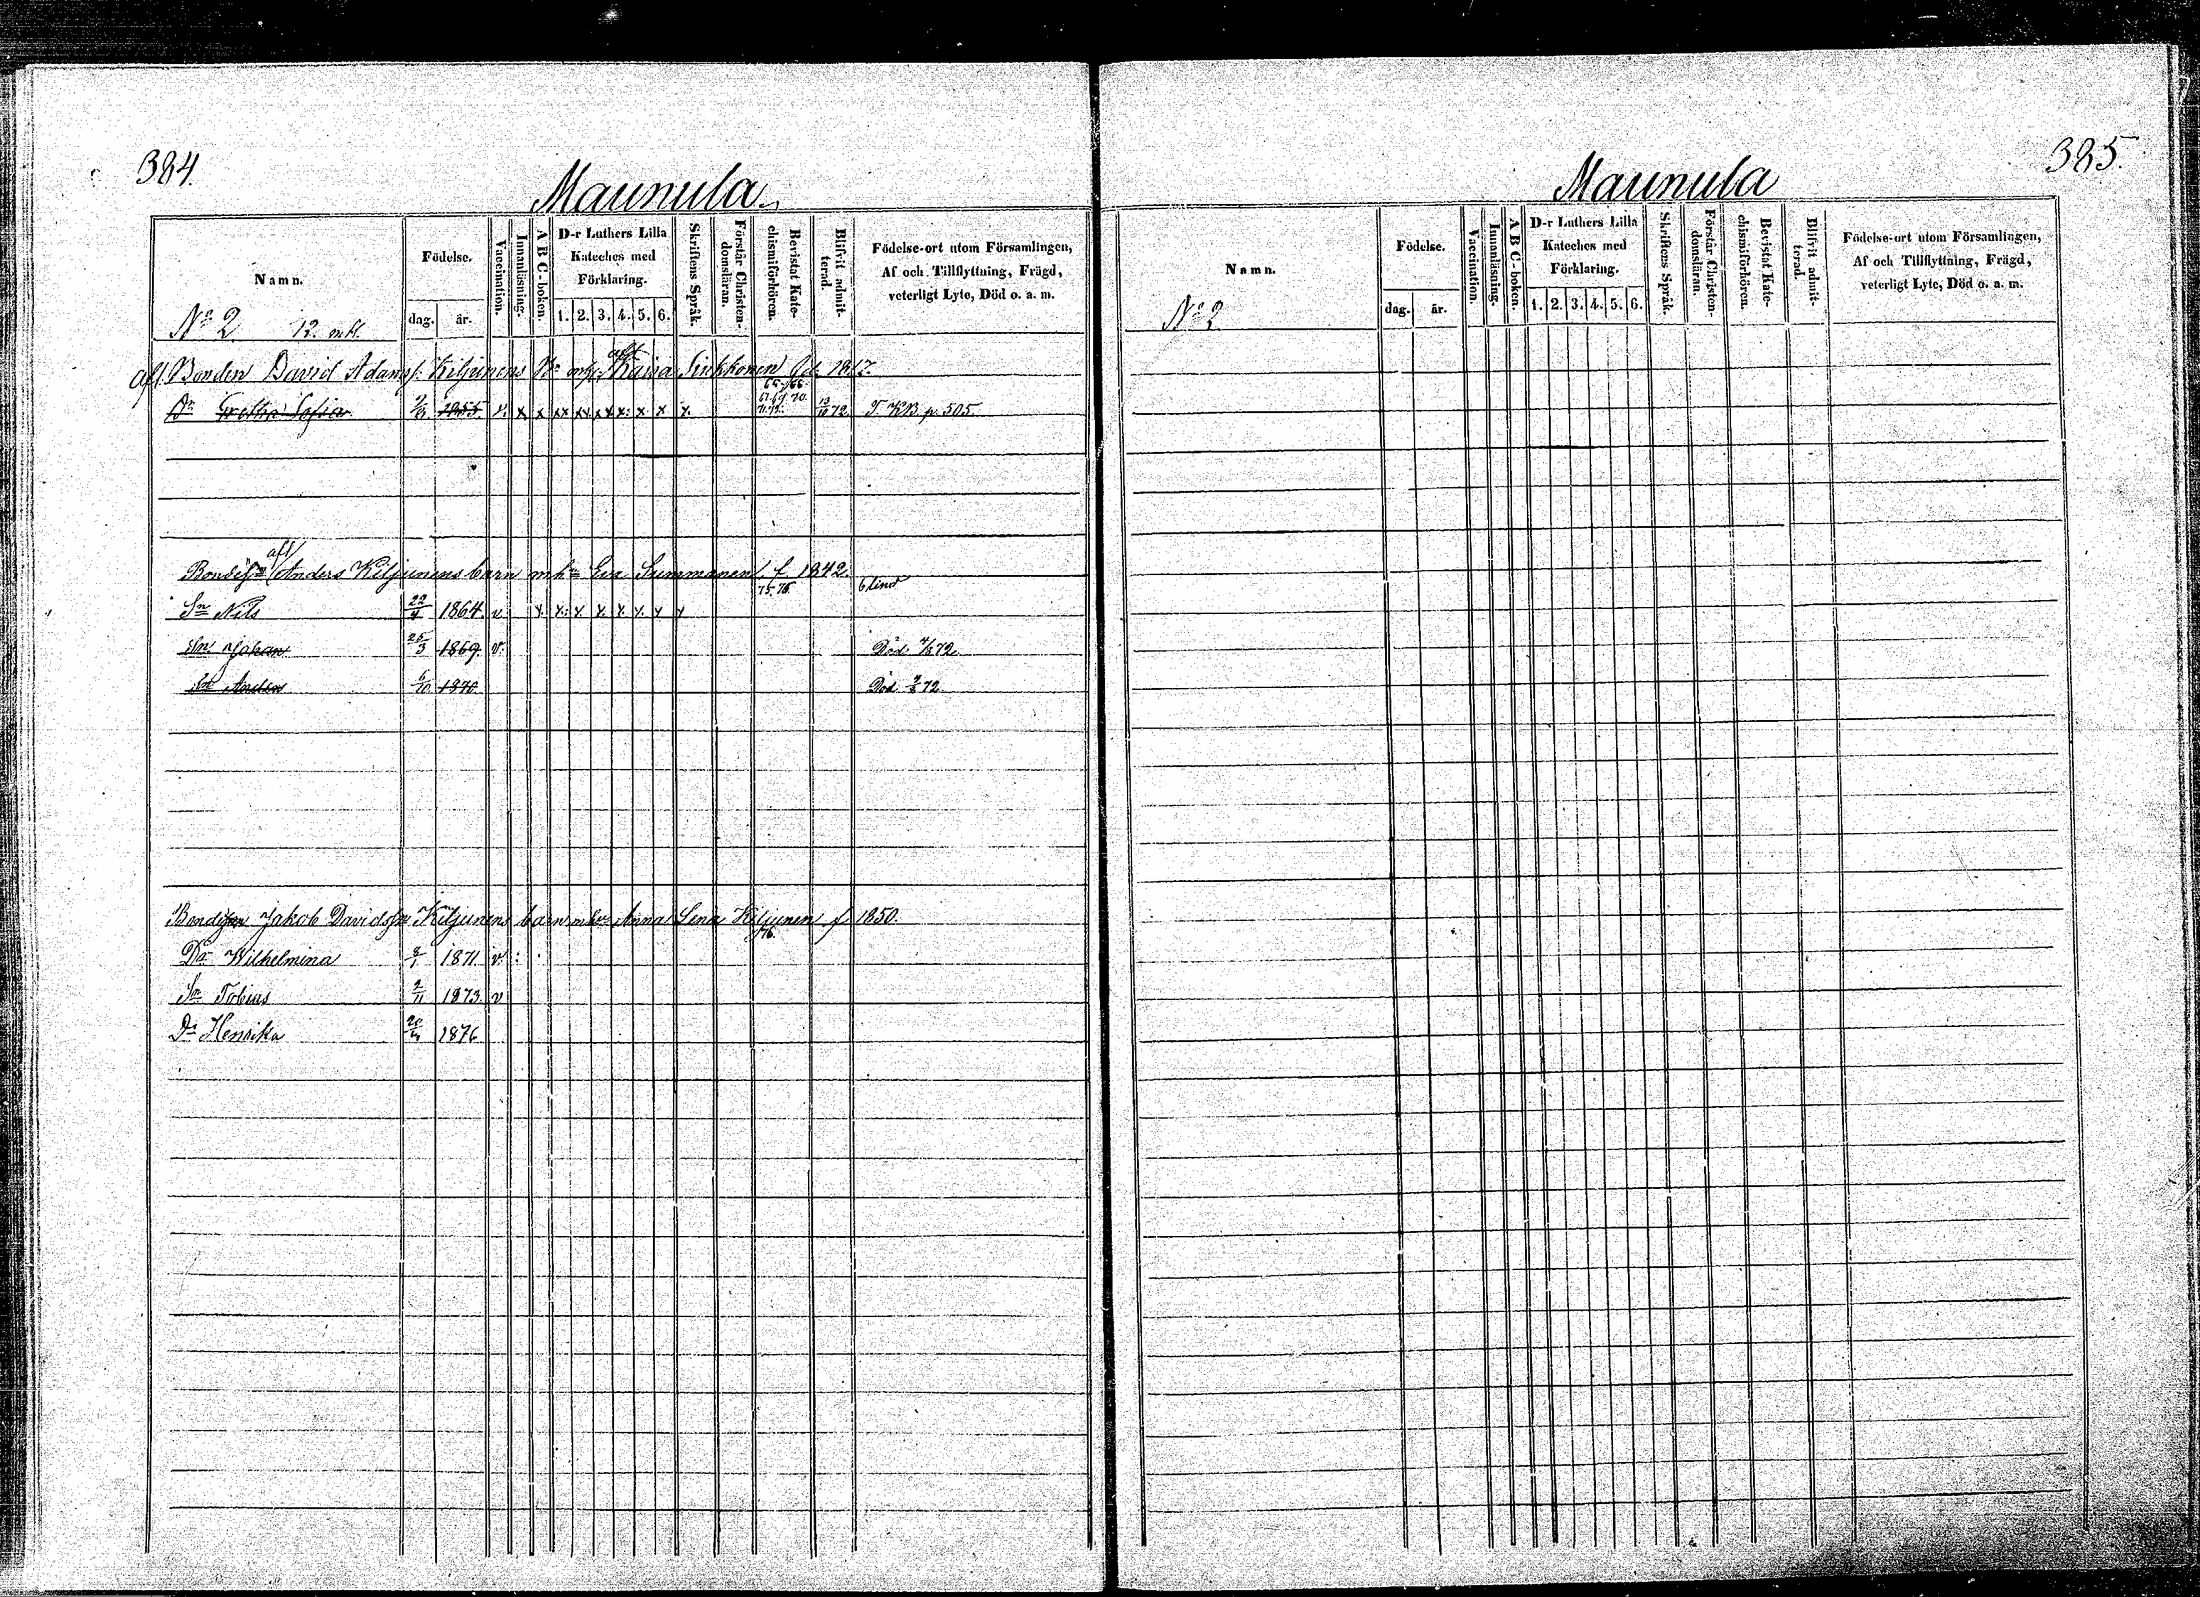 384.
Maunula
Namn. Födelse. Vaccination. Innanläsning. A B C-boken. D-r Luthers Lilla Kateches med Förklaring. Skriftens Språk. Förstår Christendomsläran. Bevistat Katechismiförhören. Blifvit admitterad. Födelse-ort utom Församlingen, Af och Tillflyttning, Frägd, veterligt Lyte, Död o. a. m.
dag. år. 1. 2. 3. 4. 5. 6.
No 2 12. mtl.
afl. Bonden David Adamsf. Kiljunens afl. Kaisa Sinkkonen 1817.
65. 66.
67. 69. 70.
Dr Gretha Sofia 1855 v. x x xx xx. xx x: x x x. 71. 72. 13/10 72 T. KB p. 505.
afl
Bondesn Anders Kiljunens barn mhu Eva Summanen f. 1842.
75. 76. blind
Sn Nils 22/4 1864. v. x x: x x. x. x. x x
Sn Johan 25/3 1869. v. Död 4/5 72
Sn Anders 6/10 1870 Död 9/5 72
Bondesn Jakob Davidsfn Kiljunens barn mhu Anna Lena Kiljunen f 1850.
76.
Dr Wilhelmina 8/1 1871 v. :
Sn Tobias 9/11 1873 v
Dr Henrika 20/4 1876
385.
Maunula
Namn. Födelse. Vaccination. Innanläsning. A B C-boken. D-r Luthers Lilla Kateches med Förklaring. Skriftens Språk. Förstår Christendomsläran. Bevistat Katechismiförhören. Blifvit admitterad. Födelse-ort utom Församlingen, Af och Tillflyttning, Frägd, veterligt Lyte, Död o. a. m.
dag. år. 1. 2. 3. 4. 5. 6.
No 2